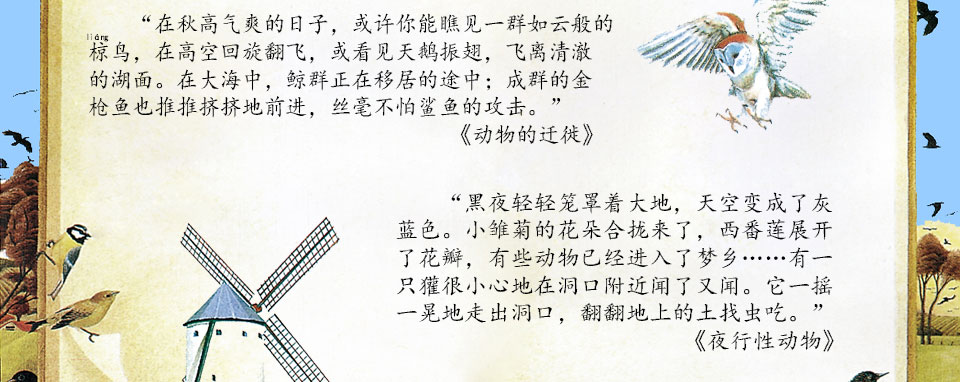 “在秋高气爽的日子，或许你能瞧见一群如云般的
liáng
椋鸟，在高空回旋翻飞，或看见天鹅振翅，飞离清澈
的湖面。在大海中，鲸群正在移居的途中；成群的金
枪鱼也推推挤挤地前进，丝毫不怕鲨鱼的攻击。”
《动物的迁徙》
“黑夜轻轻笼罩着大地，天空变成了灰
蓝色。小雏菊的花朵合拢来了，西番莲展开
了花瓣，有些动物已经进入了梦乡……有一
只獾很小心地在洞口附近闻了又闻。它一摇
一晃地走出洞口，翻翻地上的土找虫吃。”
《夜行性动物》